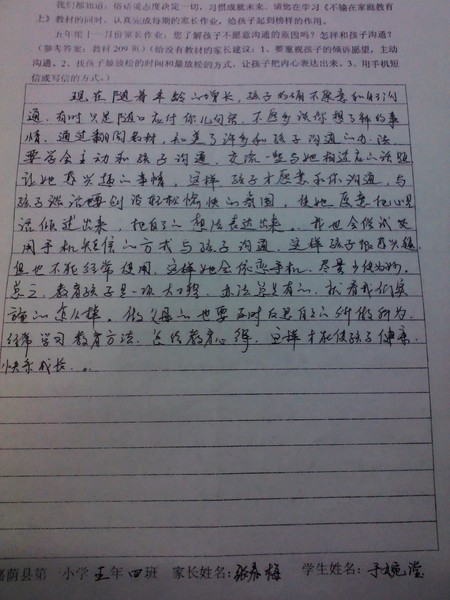 我们都知道:俗话说态度决定一切,习惯成就未来。请您在学习《不输在家庭教育
上》教材的同时,认真完成每期的家长作业,给孩子起到榜样的作用。
五年级十一月份家长作业:您了解孩子不愿意沟通的原因吗?怎样和孩子沟通?
(参考答案:教材209页)(给没有教材的家长建议:1、要重视孩子的倾诉愿望,主动
沟通。2、找孩子最放松的时间和最放松的方式,让孩子把内心表达出来。3、用手机短
信或写信的方式。)
现在随着年龄的增长,孩子的确不愿意和我们沟
通,有时只是随口应付你几句话,不愿多谈你想了解的事
情。通过翻阅教材,知道了许多和孩子沟通的办法,
要学会主动和孩子沟通,交流一些与她相适应的话题
让她感兴趣的事情,这样孩子才愿意和你沟通,与
孩子谈话要创设轻松愉快的氛围,使她愿意把心里
话倾述出来,把自己的想法表达出来。我也会尝试使
用手机短信的方式与孩子沟通,这样孩子很感兴趣
但也不能经常使用,这样她会依恋手机,尽量少使为妙。
总之,教育孩子是一项大工程,办法总是有的,就看我们实
施的怎么样。做父母的也要及时反思自己的所做所为
经常学习教育方法,总结教育心得,这样才能使孩子健康
快乐成长。
嘉荫县第一小学 五年 四班 家长姓名:张春梅 学生姓名:于婉滢